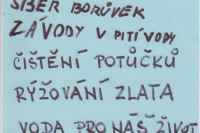 SBĚR BORŮVEK
ZÁVODY V PITÍ VODY
ČIŠTĚNÍ POTŮČKŮ
RÝŽOVÁNÍ ZLATA
VODA PRO NÁŠ ŽIVOT